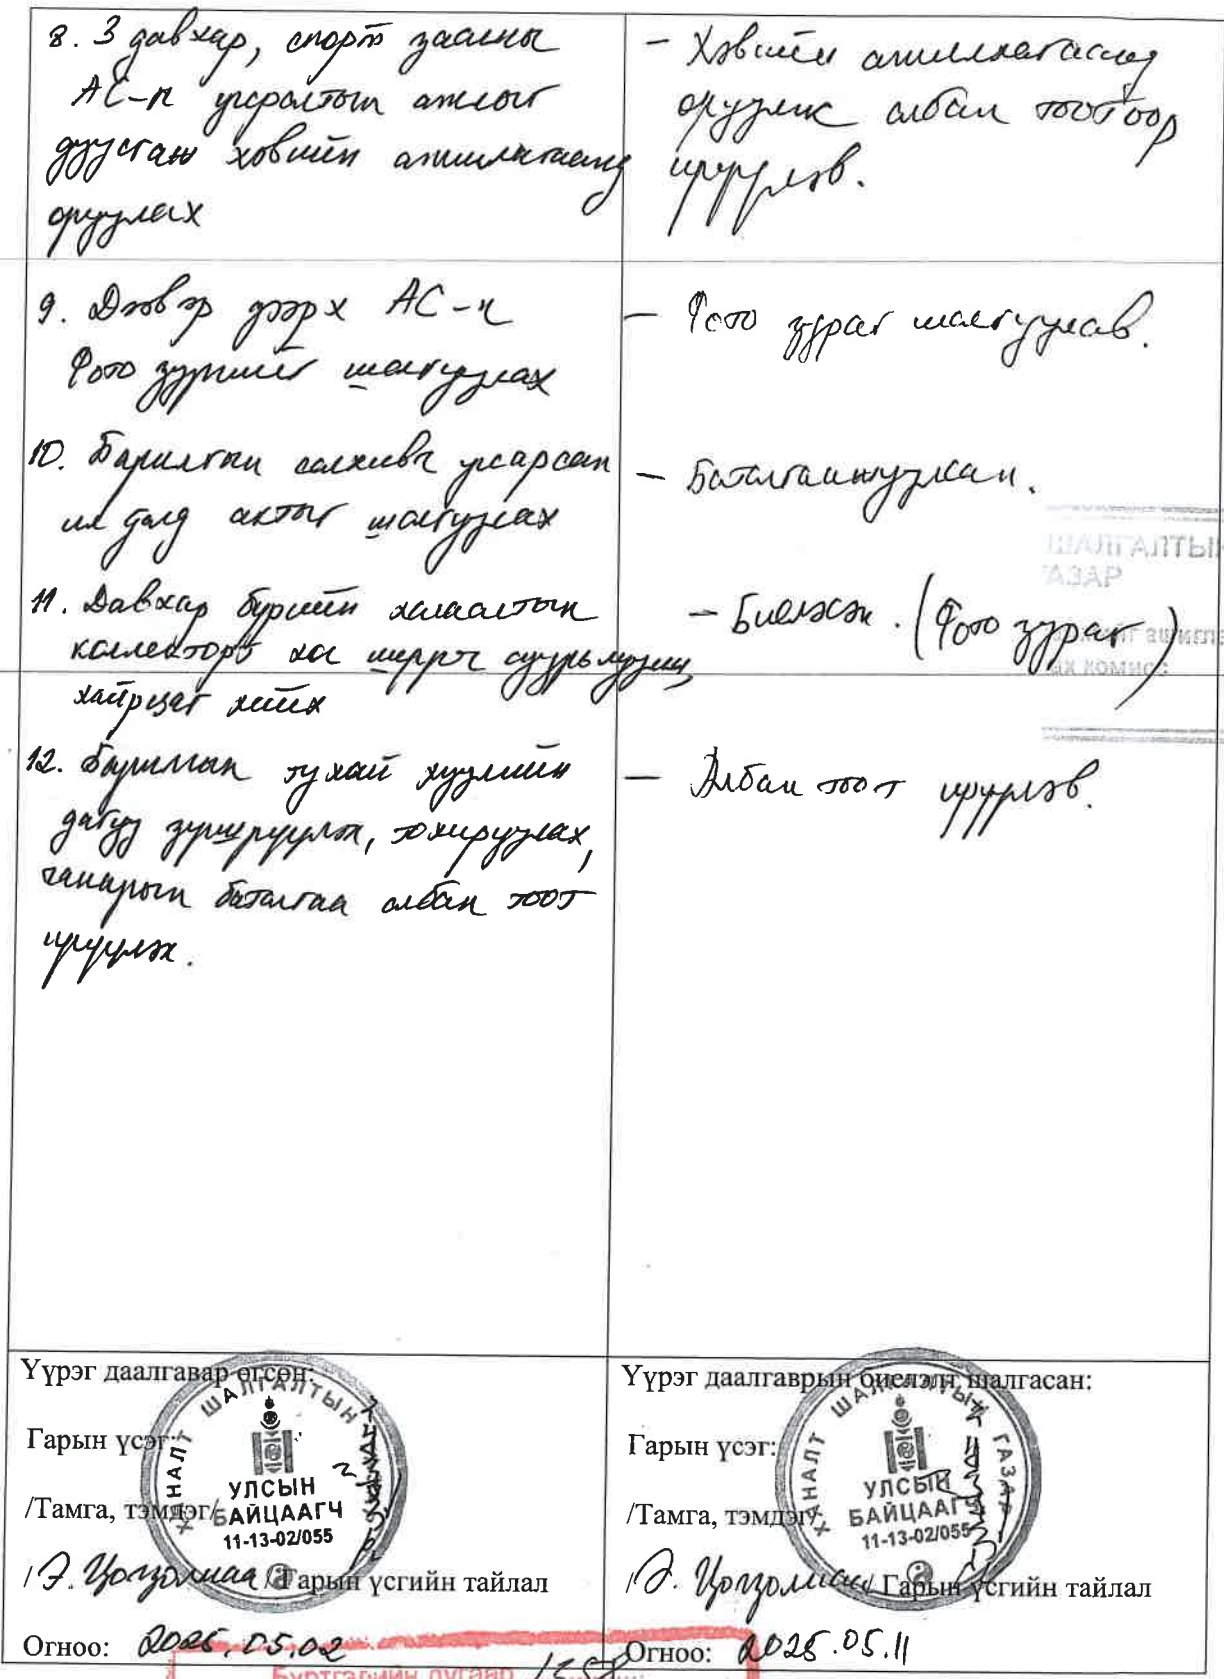 8. 3 давхар, спорт заалны
АС-н угсралтын ажлыг
дуусгаж хэвийн ажиллагаанд
оруулах
- Хэвийн ажиллагаанд
оруулж албан тоотоор
ирүүлэв.
9. Дээвэр дээрх АС-н
Фото зургийг шалгуулах
- Фото зураг шалгуулав.
10. Барилгын салхивч угсарсан
ил далд актыг шалгуулах
- Баталгаажуулсан.
11. Давхар бүрийн халаалтын
коллекторт хос ширрч суурьлуулж,
хайрцаг хийх
- Биелэсэн. (Фото зураг)
12. Барилгын тухай хуулийн
дагуу зүгшрүүлэх, тохируулах,
чанарын баталгаа албан тоот
ирүүлэх.
- Албан тоот ирүүлэв.
ШАЛГАЛТЫН
ГАЗАР
Үүрэг даалгавар өгсөн:
Гарын үсэг:
/Тамга, тэмдэг/
/Э. Цогзолмаа/ Гарын үсгийн тайлал
Огноо: 2025.05.02
ХЯНАЛТ ШАЛГАЛТЫН
УЛСЫН
БАЙЦААГЧ
11-13-02/055
Үүрэг даалгаврын биелэлт шалгасан:
Гарын үсэг:
/Тамга, тэмдэг/
/Э. Цогзолмаа/ Гарын үсгийн тайлал
Огноо: 2025.05.11
ХЯНАЛТ ШАЛГАЛТЫН ГАЗАР
УЛСЫН
БАЙЦААГЧ
11-13-02/055
Бүртгэлийн дугаар